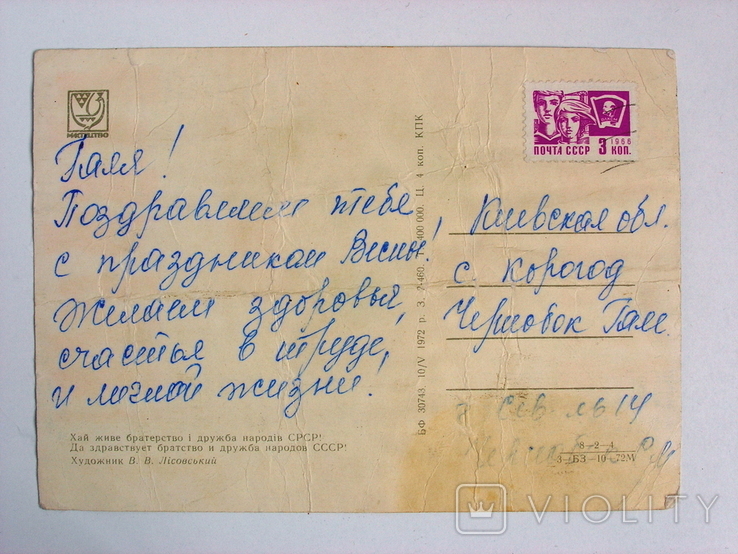 МИСТЕЦТВО
Галя!
Поздравляем тебя
с праздником Весны!
Желаем здоровья,
счастья в труде,
и личной жизни!
Хай живе братерство і дружба народів СРСР!
Да здравствует братство и дружба народов СССР!
Художник В. В. Лісовський
БФ 30743. 10/V 1972 р. З. 7-460. 400 000. Ц. 4 коп. КПК
1966
ПОЧТА СССР 3 КОП.
Киевская обл.
с. Корогод
Чернобок Гале
8-2-4
3-БЗ-10-72М
VIOLITY